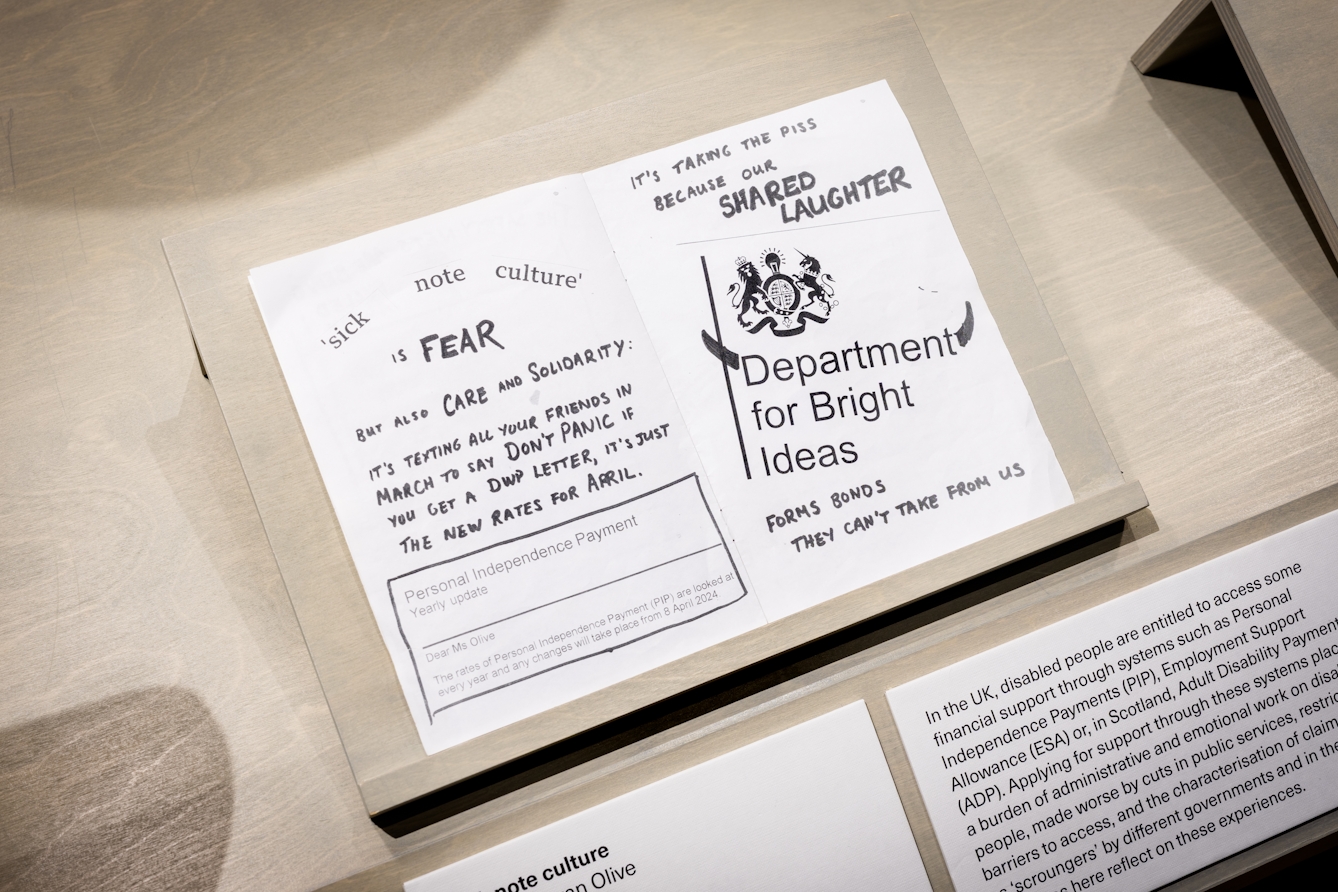 'sick note culture'
IS FEAR
BUT ALSO CARE AND SOLIDARITY:
IT'S TEXTING ALL YOUR FRIENDS IN
MARCH TO SAY DON'T PANIC IF
YOU GET A DWP LETTER, IT'S JUST
THE NEW RATES FOR APRIL.
Personal Independence Payment
Yearly update
Dear Ms Olive
The rates of Personal Independence Payment (PIP) are looked at
every year and any changes will take place from 8 April 2024
IT'S TAKING THE PISS
BECAUSE OUR
SHARED
LAUGHTER
Department
for Bright
Ideas
FORMS BONDS
THEY CAN'T TAKE FROM US
note culture
Olive
In the UK, disabled people are entitled to access some
financial support through systems such as Personal
Independence Payments (PIP), Employment Support
Allowance (ESA) or, in Scotland, Adult Disability Payment
(ADP). Applying for support through these systems
a burden of administrative and emotional work on
people, made worse by cuts in public services,
barriers to access, and the characterisation of
'scroungers' by different governments and in the
here reflect on these experiences.